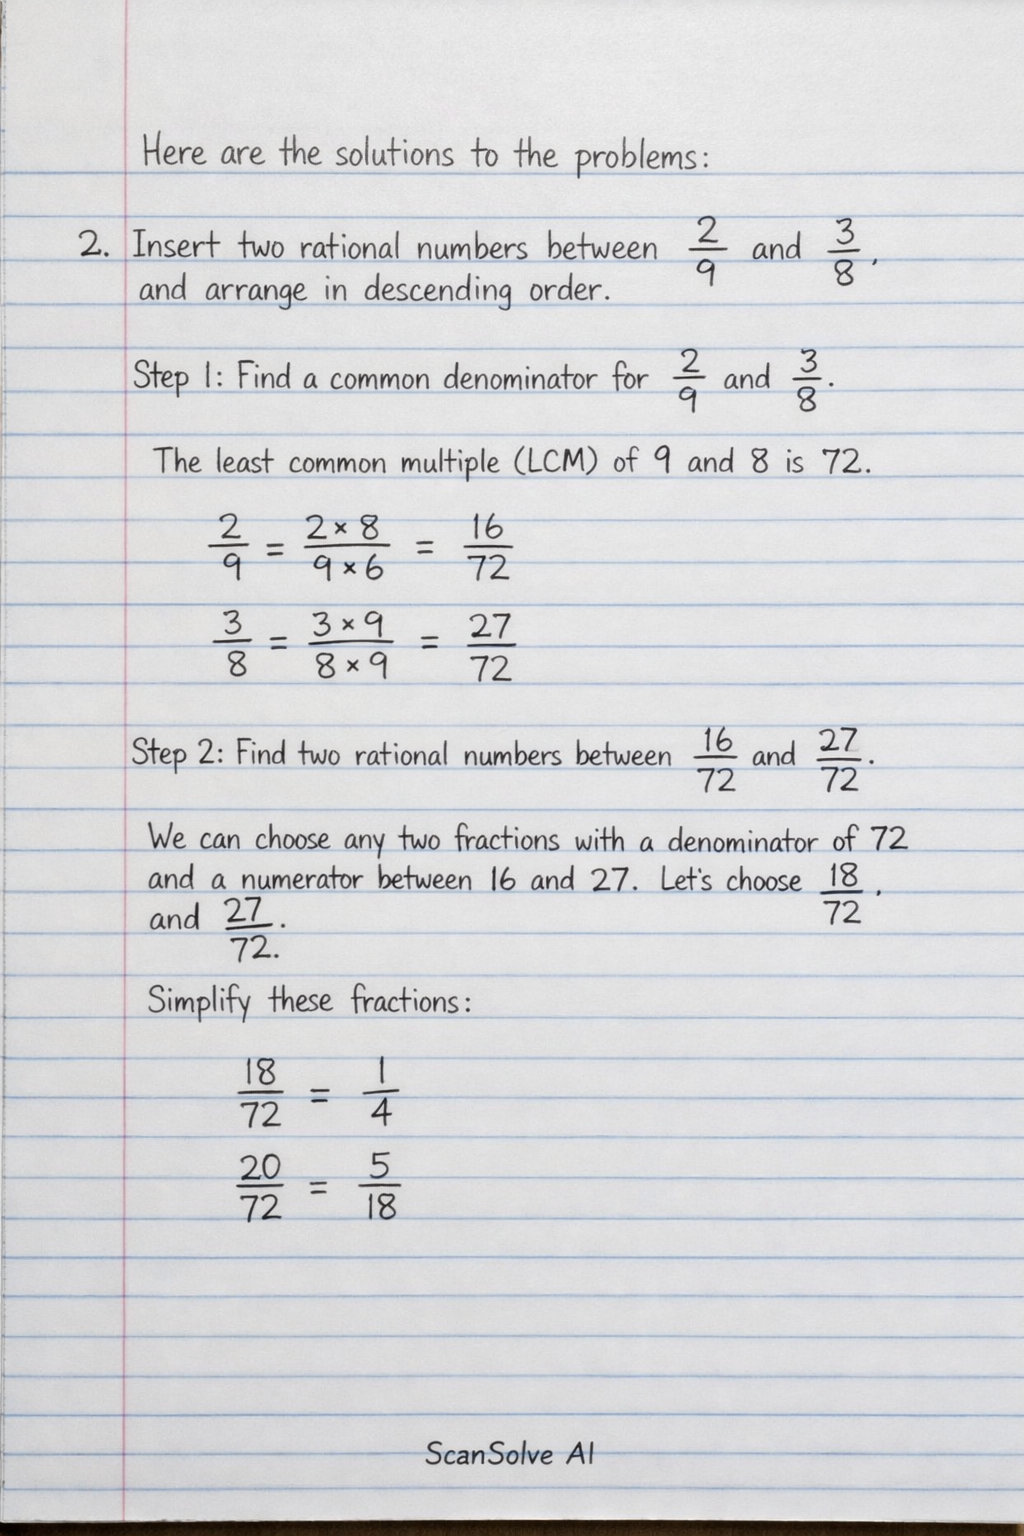 Here are the solutions to the problems:
2. Insert two rational numbers between 2/9 and 3/8,
and arrange in descending order.
Step 1: Find a common denominator for 2/9 and 3/8.
The least common multiple (LCM) of 9 and 8 is 72.
2/9 = 2 × 8/9 × 6 = 16/72
3/8 = 3 × 9/8 × 9 = 27/72
Step 2: Find two rational numbers between 16/72 and 27/72.
We can choose any two fractions with a denominator of 72
and a numerator between 16 and 27. Let's choose 18/72,
and 27/72..
Simplify these fractions:
18/72 = 1/4
20/72 = 5/18
ScanSolve AI